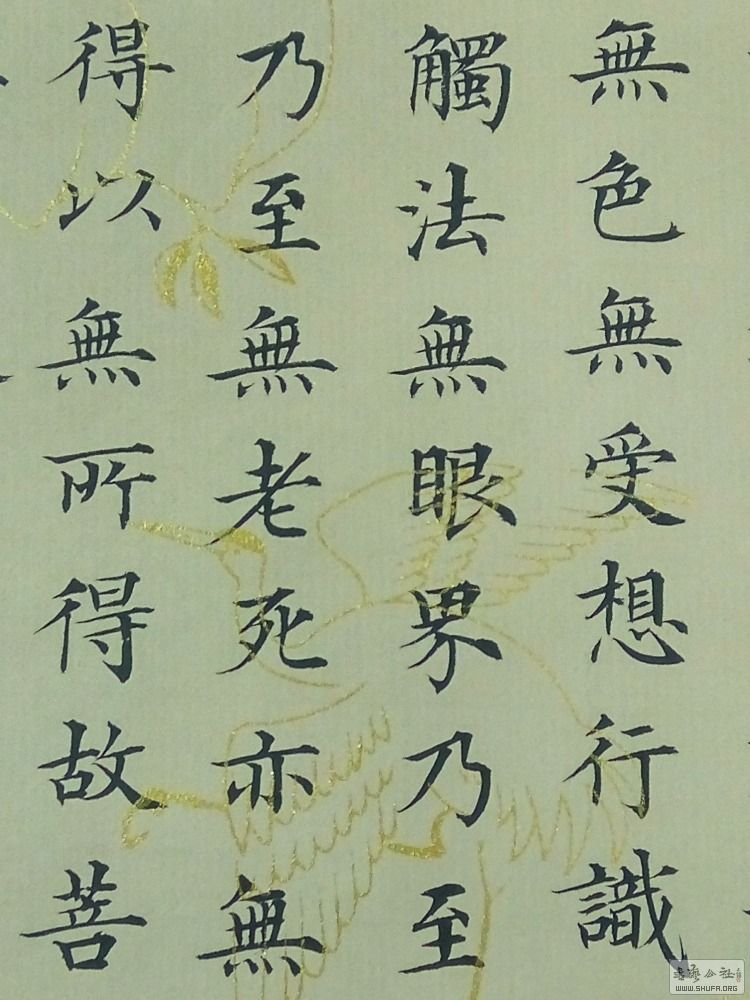 無色無受想行識
觸法無眼界乃至
乃至無老死亦無
得以無所得故菩
书法公社
WWW.SHUFA.ORG